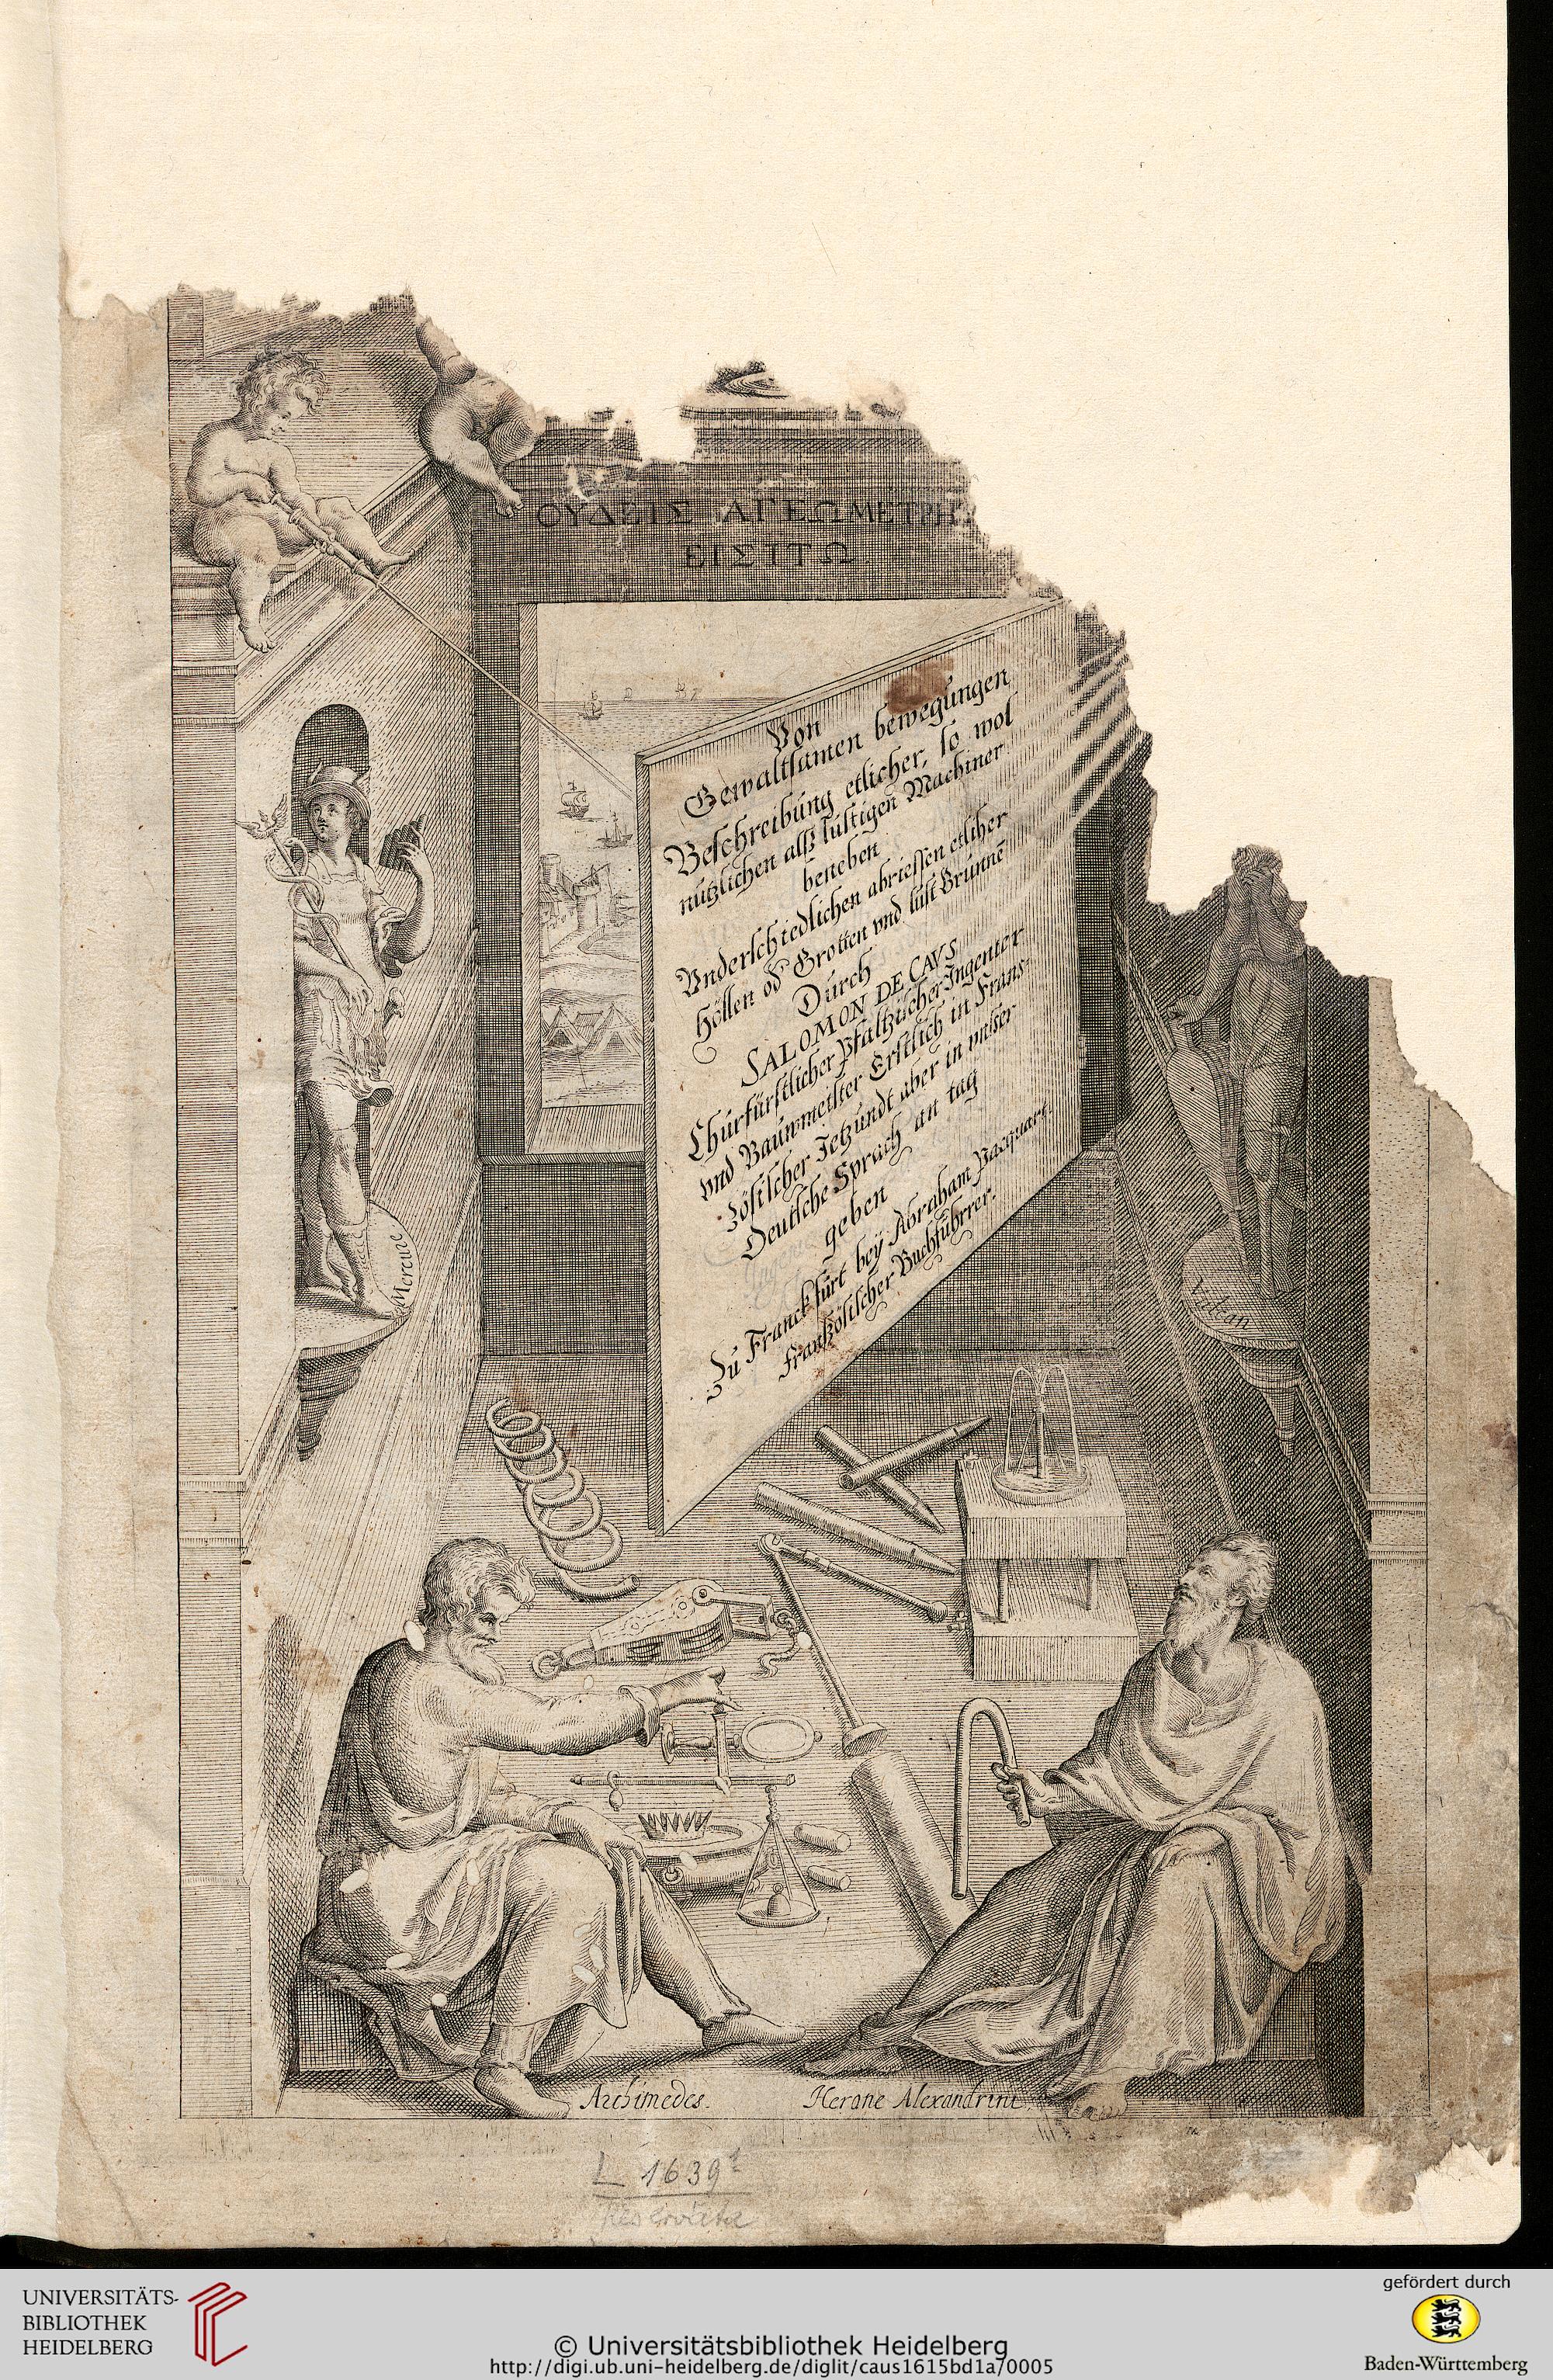 ΟΥΔΕΙΣ ΑΓΕΩΜΕΤΡΗ
ΕΙΣΙΤΩ
Von
Gewaltsamen bewegungen
Beschreibung etlicher, so wol
nützlichen alß lustigen Machiner
beneben
Vnderschiedlichen abriessen etlicher
Höllen od Grotten vnd lust Brunnē
Durch
SALOMON DE CAVS
Churfürstlicher Pfaltzischer Ingenier
vnd Bauwmeister Erstlich in Frans-
zösischer Jetzundt aber in unser
Deutsche Sprach an tag
geben
Zu Franckfurt bey Abraham Pacquart
frantzösischer Buchführrer.
Mercure
Vulcan
Archimedes.
Herone Alexandrini.
L 1639
UNIVERSITÄTS-
BIBLIOTHEK
HEIDELBERG
© Universitätsbibliothek Heidelberg
http://digi.ub.uni-heidelberg.de/diglit/caus1615bd1a/0005
gefördert durch
Baden-Württemberg